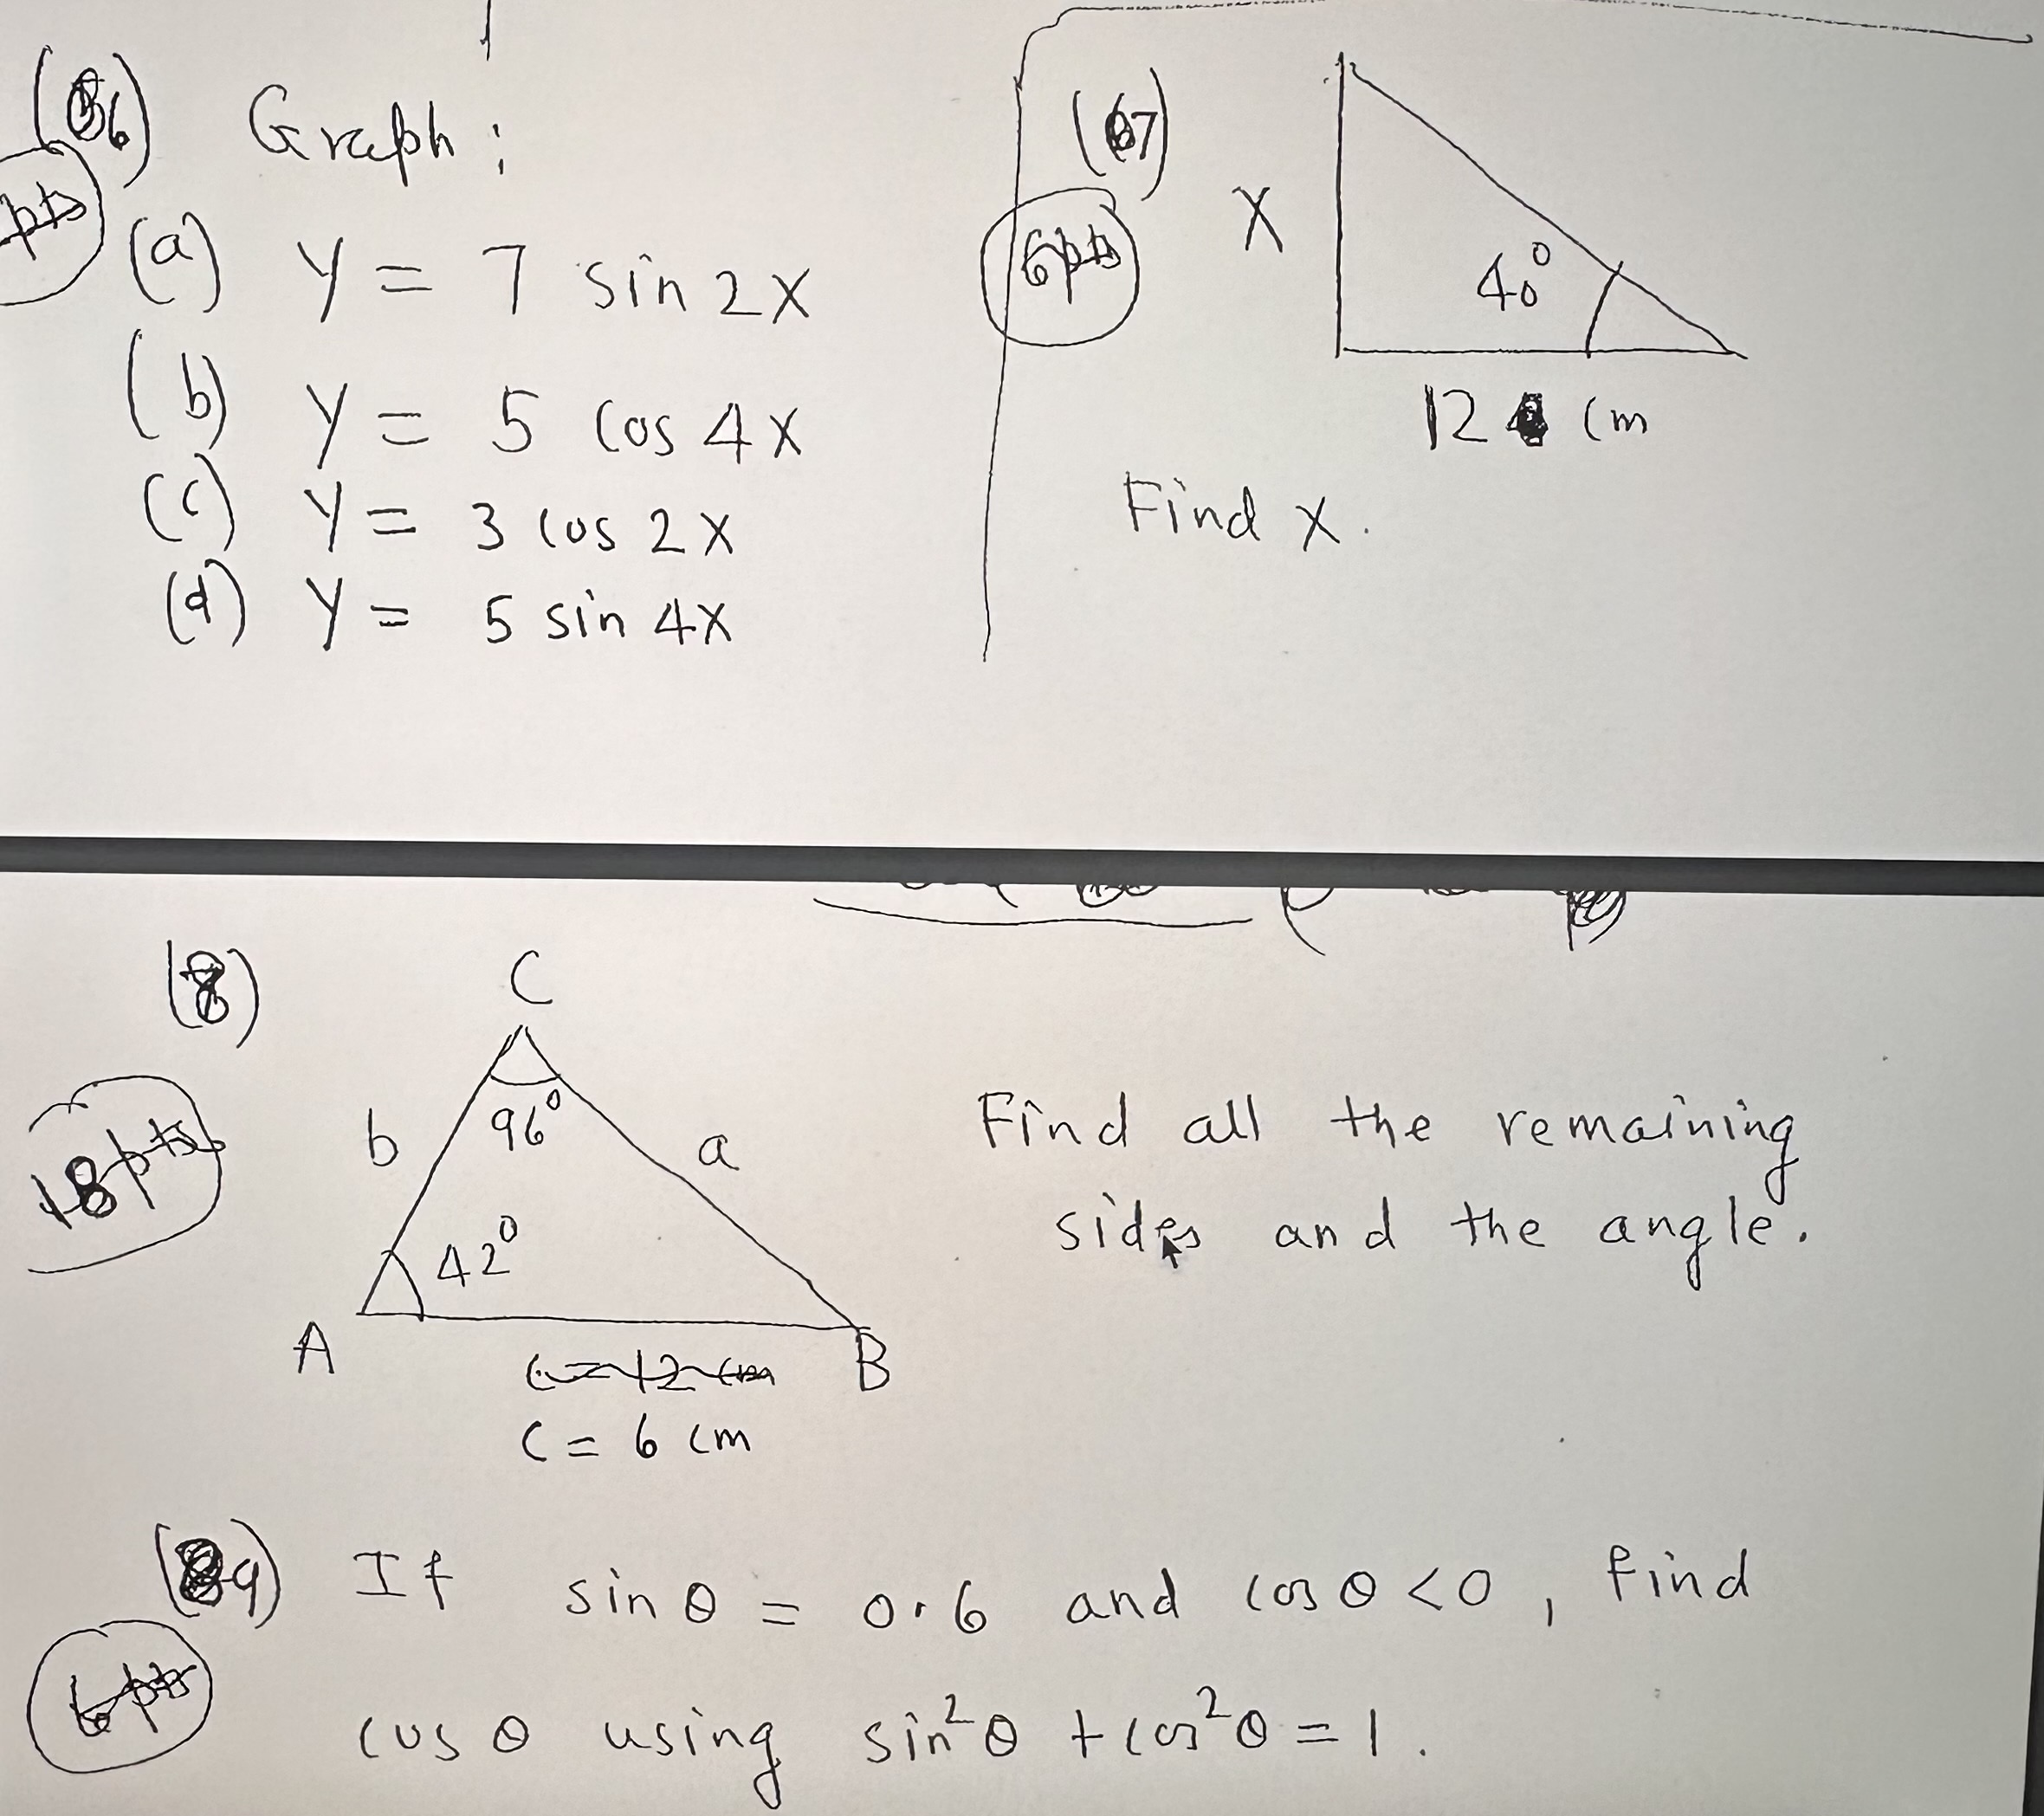 (6) Graph:
pts
(a) y = 7 sin 2x
(b) y = 5 cos 4x
(c) y = 3 cos 2x
(d) y = 5 sin 4x
(7)
6pts
x
40°
12 cm
Find x.
(8)
18pts
C
96°
b
a
42°
A
B
c = 12 cm
c = 6 cm
Find all the remaining
sides and the angle.
(9) If sin θ = 0.6 and cos θ < 0, find
6pts
cos θ using sin²θ + cos²θ = 1.